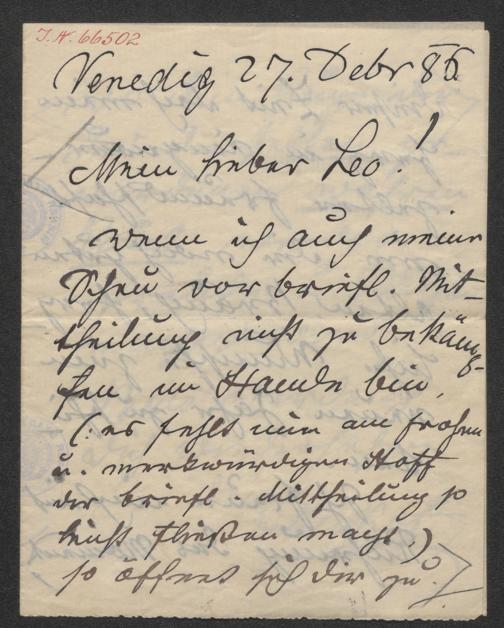 J.N. 66502
Venedig 27. Debr 86
Mein lieber Leo!
wenn ich auch meine
Scheu vor briefl. Mit-
theilung nicht zu bekäm-
fen im Stande bin,
(: es fehlt mir am frohen
u. merkwürdigen Stoff
der briefl. Mittheilung so
leicht fließen macht.)
so öffnet sich dir zu